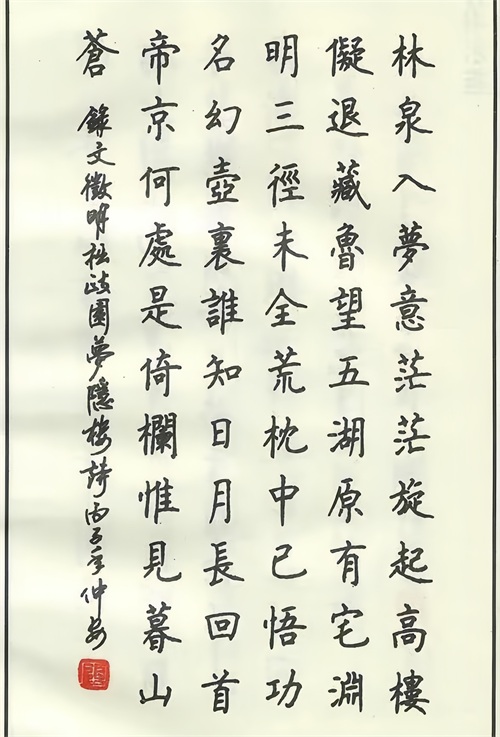 林泉入夢意茫茫旋起高樓
儗退藏魯望五湖原有宅淵
明三徑未全荒枕中已悟功
名幻壺裏誰知日月長回首
帝京何處是倚欄惟見暮山
蒼 錄文徵明拙政園夢隱樓詩